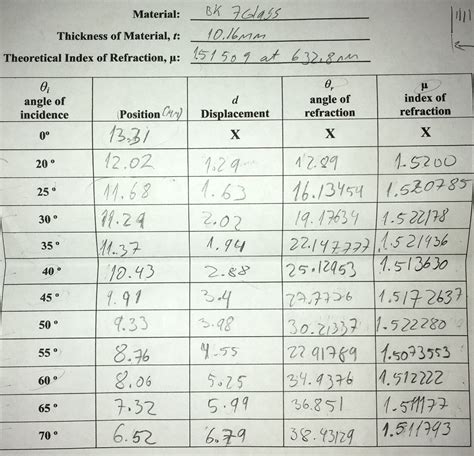 Material: BK 7 Glass
Thickness of Material, t: 10.16mm
Theoretical Index of Refraction, μ: 1.51509 at 632.8nm
θi angle of incidence | Position (mm) | d Displacement | θr angle of refraction | μ index of refraction
0° 13.31 X X X
20° 12.02 1.29 12.89 1.5200
25° 11.68 1.63 16.13454 1.520785
30° 11.29 2.02 19.17634 1.522178
35° 11.37 1.94 22.147777 1.521936
40° 10.43 2.88 25.12953 1.513630
45° 9.91 3.4 27.7726 1.5172637
50° 9.33 3.98 30.21337 1.522280
55° 8.76 4.55 22.91789 1.5073553
60° 8.06 5.25 34.9376 1.512222
65° 7.32 5.99 36.851 1.511177
70° 6.52 6.79 38.43129 1.511793